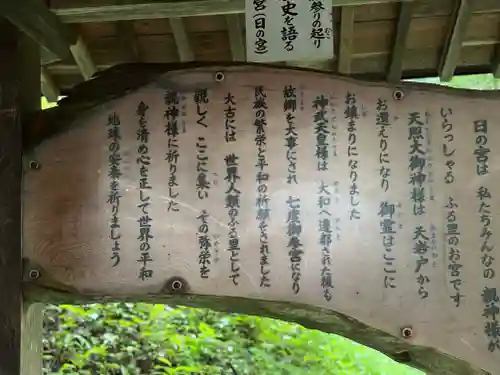 参りの起り
(日の宮)
史を語る
宮(日の宮)
日の宮は 私たちみんなの 親神様が
いらっしゃる ふる里のお宮です
天照大御神様は 天岩戸から
お還えりになり 御霊はここに
お鎮まりになりました
神武天皇様は 大和へ遷都された後も
故郷を大事にされ 七度御参宮になり
民族の繁栄と平和の祈願をされました
大古には 世界人類のふる里として
親しく ここに集い その弥栄を
親神様に祈りました
身を清め心を正して世界の平和
地球の安泰を祈りましょう